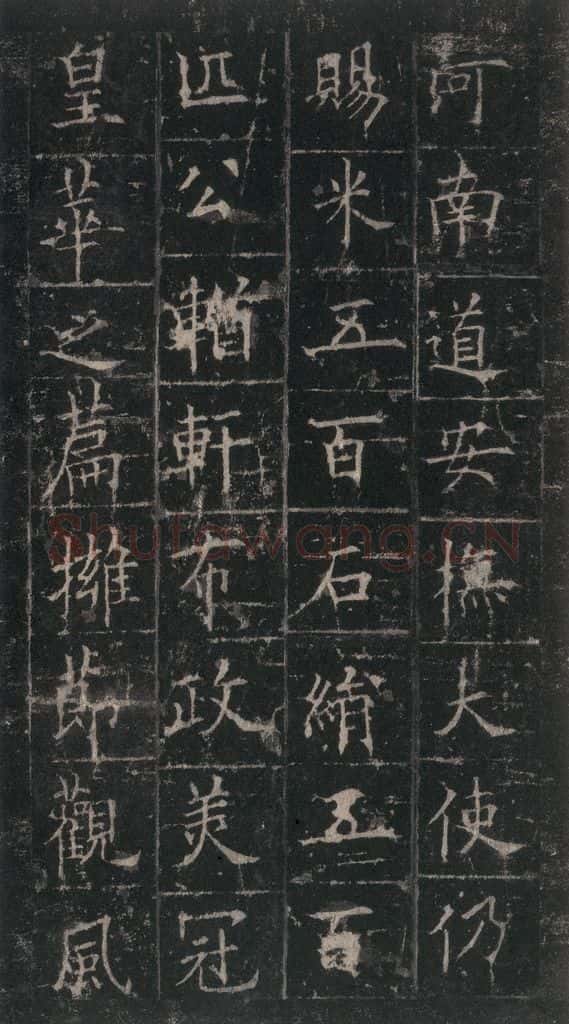 河南道安撫大使仍
賜米五百石絹五百
匹公輶軒布政美冠
皇華之篇擁節觀風
Shufawang.CN